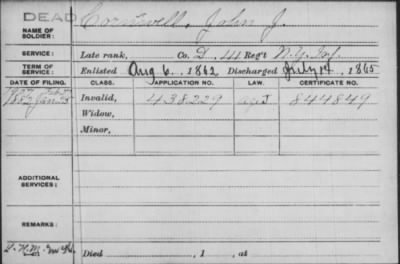 DEAD
NAME OF SOLDIER: Cornwell, John J.
SERVICE: Late rank, Co. D, 44 Reg't N.Y. Inf.
TERM OF SERVICE: Enlisted Aug 6, 1862 Discharged July 14, 1865
DATE OF FILING. CLASS. APPLICATION NO. LAW. CERTIFICATE NO.
Invalid, 438229 844849
Widow,
Minor,
ADDITIONAL SERVICES:
REMARKS:
Died , 1 , at